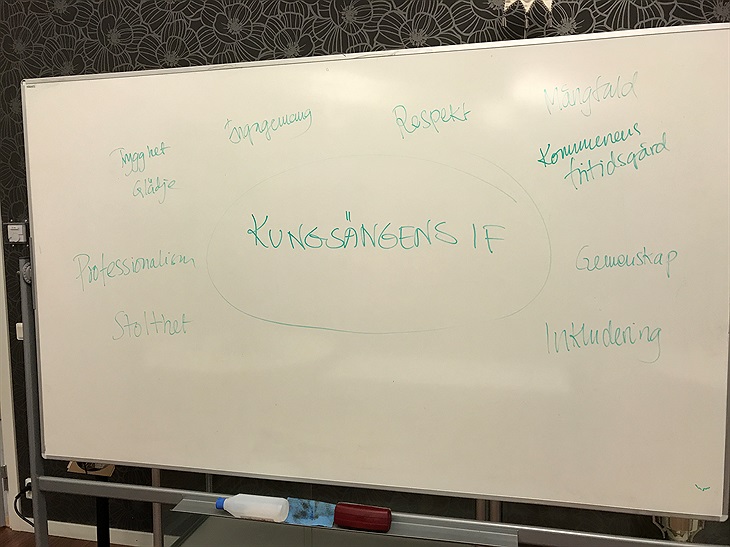 Engagemang
Respekt
Mångfald
Trygghet
Glädje
Kommunens
fritidsgård
KUNGSÄNGENS IF
Professionalism
Gemenskap
Stolthet
Inkludering